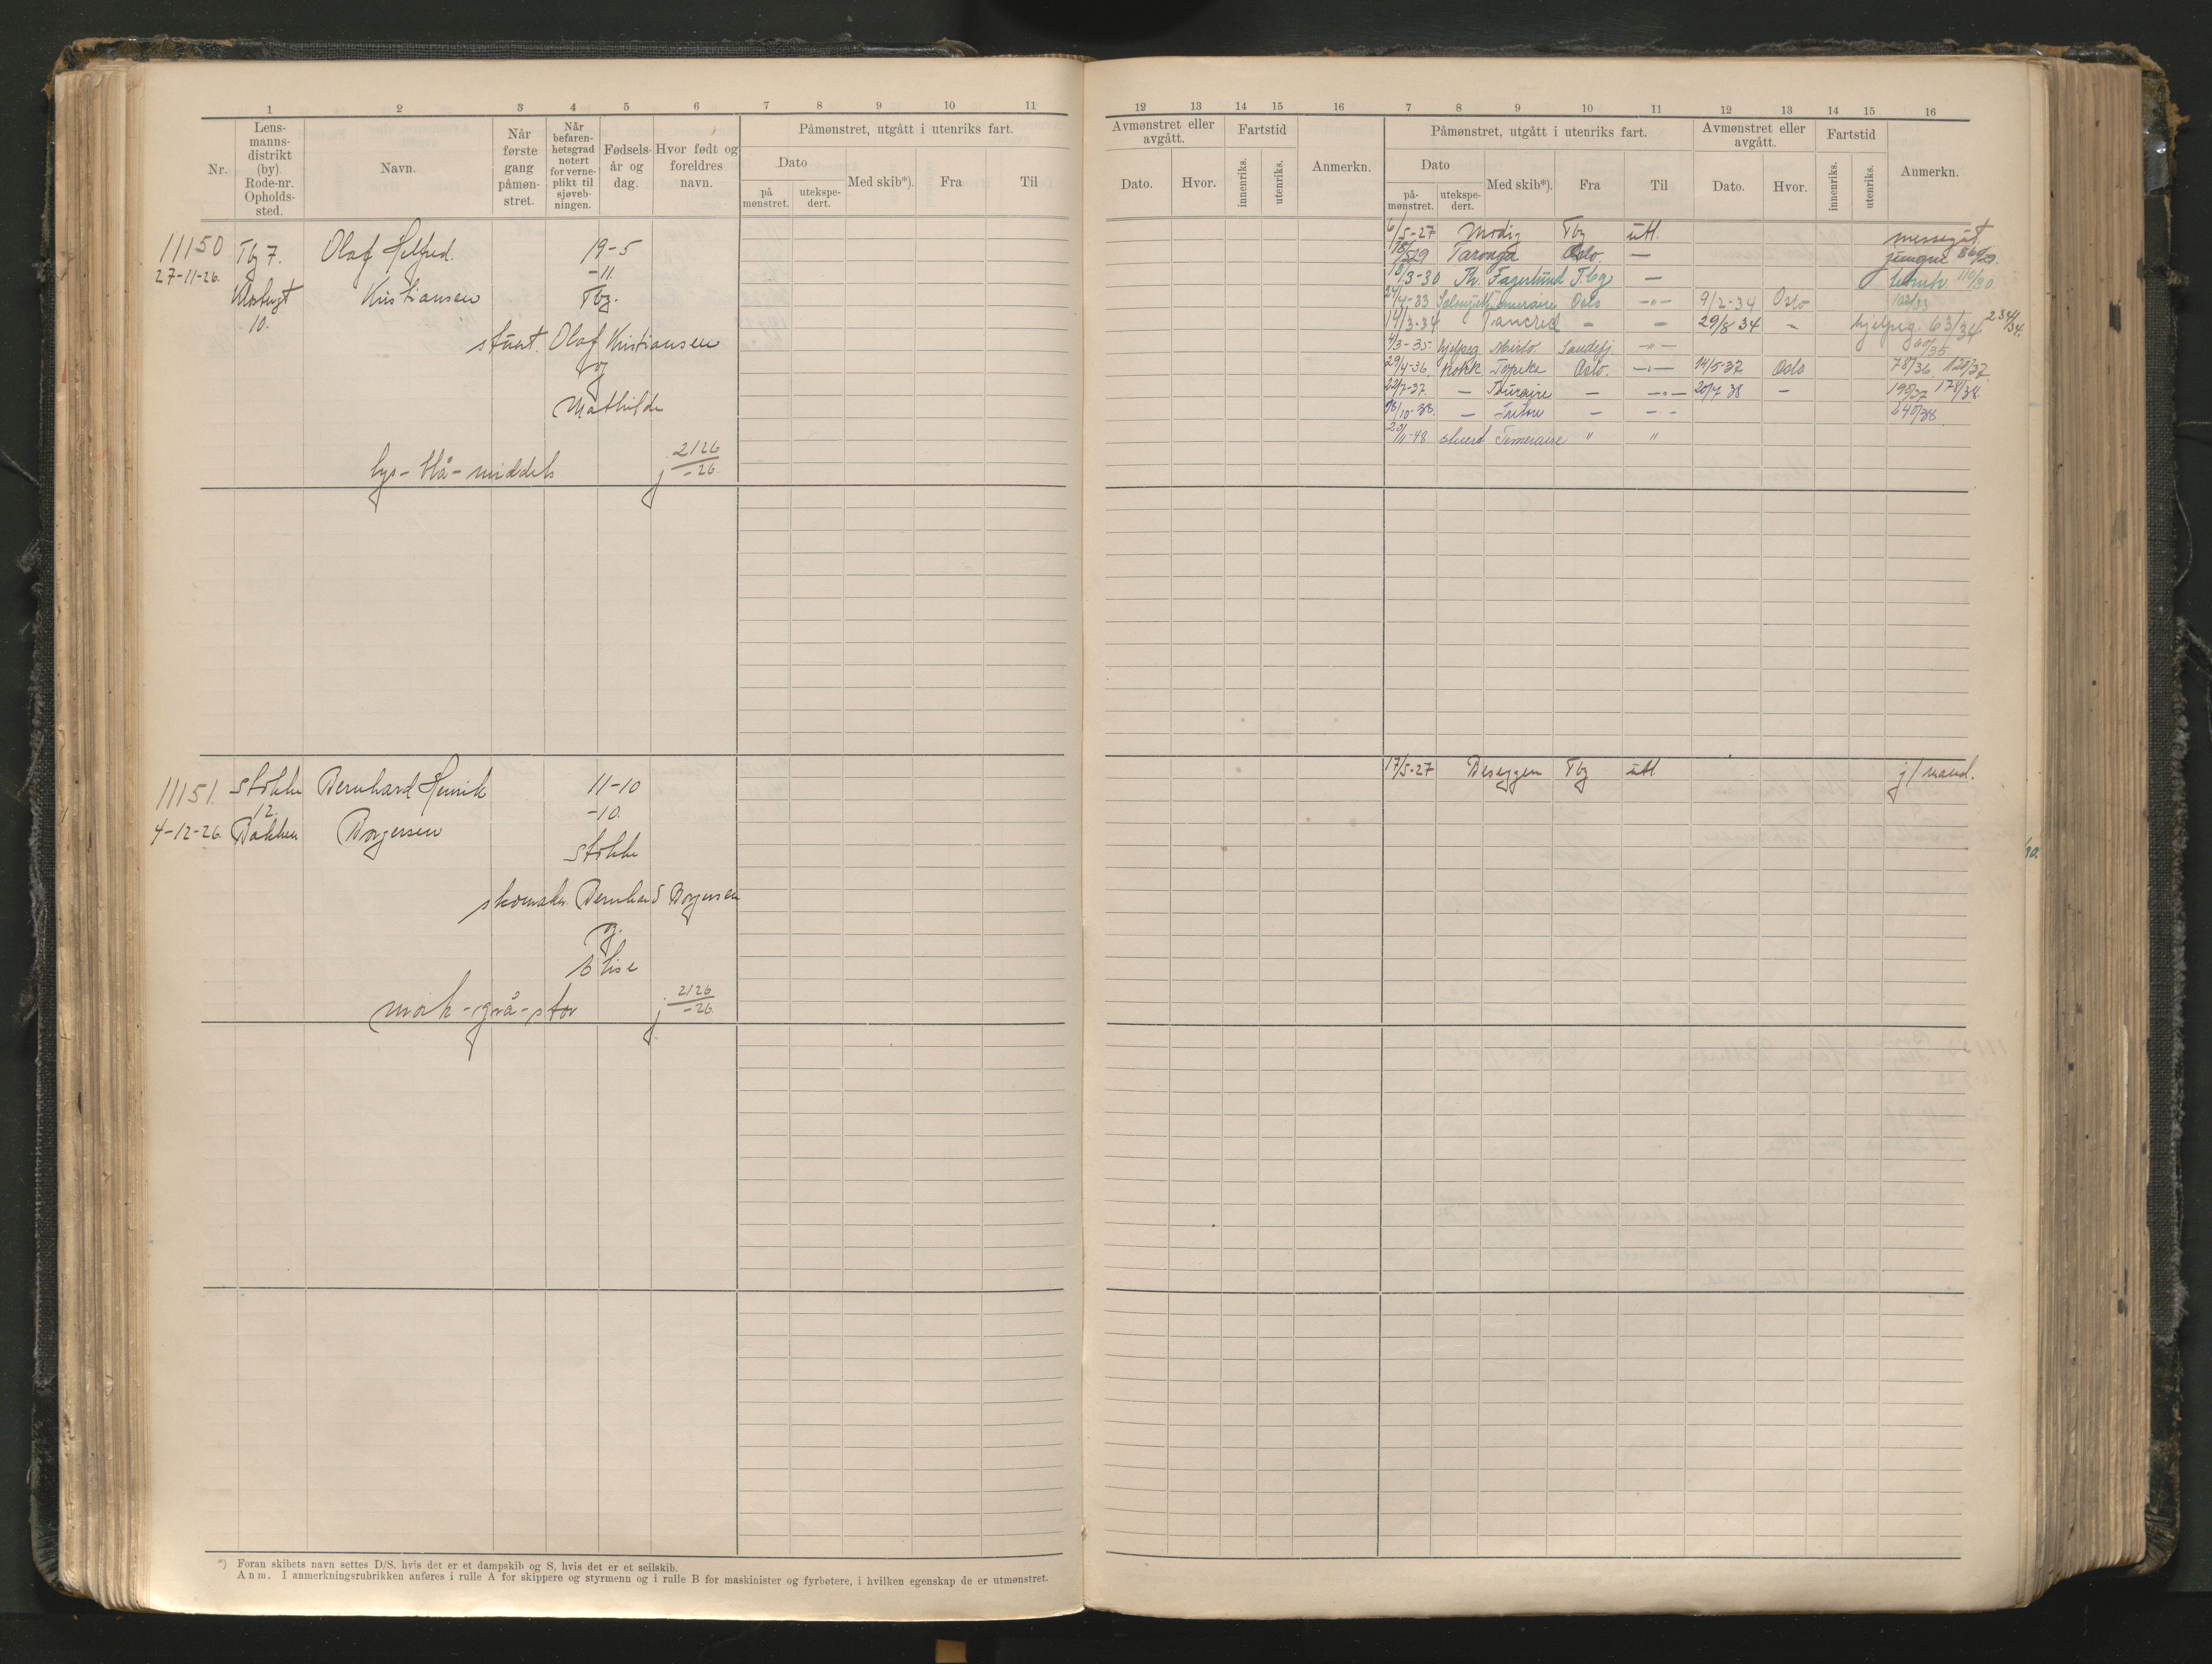 1 2 3 4 5 6 7 8 9 10 11
Nr.
Lens-
manns-
distrikt
(by).
Rode-nr.
Opholds-
sted.
Navn.
Når
første
gang
påmøn-
stret.
Når
befaren-
hetsgrad
notert
for verne-
plikt til
sjøveb-
ningen.
Fødsels-
år og
dag.
Hvor født og
foreldres
navn.
Påmønstret, utgått i utenriks fart.
Dato
på
mønstret.
utekspe-
dert.
Med skib*).
Fra
Til
11150 Tbg 7. Olaf Helfred. 19-5
27-11-26. -11.
Kristiansen Tbg.
10.
stuert. Olaf Kristiansen
og
Mathilde
lys - blå - middels j 2126/-26.
11151. Stokke Bernhard Henrik 11-10
12. -10.
4-12-26. Bakken Borgersen
Stokke
skomaker. Bernhard Borgersen
og
Elise
mørk - grå - stor j 2126/-26
*) Foran skibets navn settes D/S. hvis det er et dampskib og S, hvis det er et seilskib.
Anm. I anmerkningsrubrikken anføres i rulle A for skippere og styrmenn og i rulle B for maskinister og fyrbøtere, i hvilken egenskap de er utmønstret.
12 13 14 15 16 7 8 9 10 11 12 13 14 15 16
Avmønstret eller
avgått.
Dato.
Hvor.
Fartstid
innenriks.
utenriks.
Anmerkn.
Påmønstret, utgått i utenriks fart.
Dato
på-
mønstret.
utekspe-
dert.
Med skib*).
Fra
Til
Avmønstret eller
avgått.
Dato.
Hvor.
Fartstid
innenriks.
utenriks.
Anmerkn.
6/5-27 Modig Tbg utl. messegut.
Taronga Oslo. — jungm
18/3-30 Th. Fagerlund Tbg — 110/30
24/4-33 Temeraire Oslo -"- 9/2-34 Oslo 102/33
14/3-34 Tancred - - 29/8 34 - hjelpeg. 63/34 234/34.
4/3-35 hjelpeg Mirlo. Sandefj. -"- 60/35
29/4-36. Kokk Topeka Oslo. -"- 14/5-37 Oslo 78/36. 120/37.
22/7-37. — Temeraire - -"- 20/7 38 - 195/37 178/38.
/10-38. — Triton - -"- 240/38.
/11-48 stuert Temeraire " "
17/5-27 Beseggen Tbg utl j/mand.